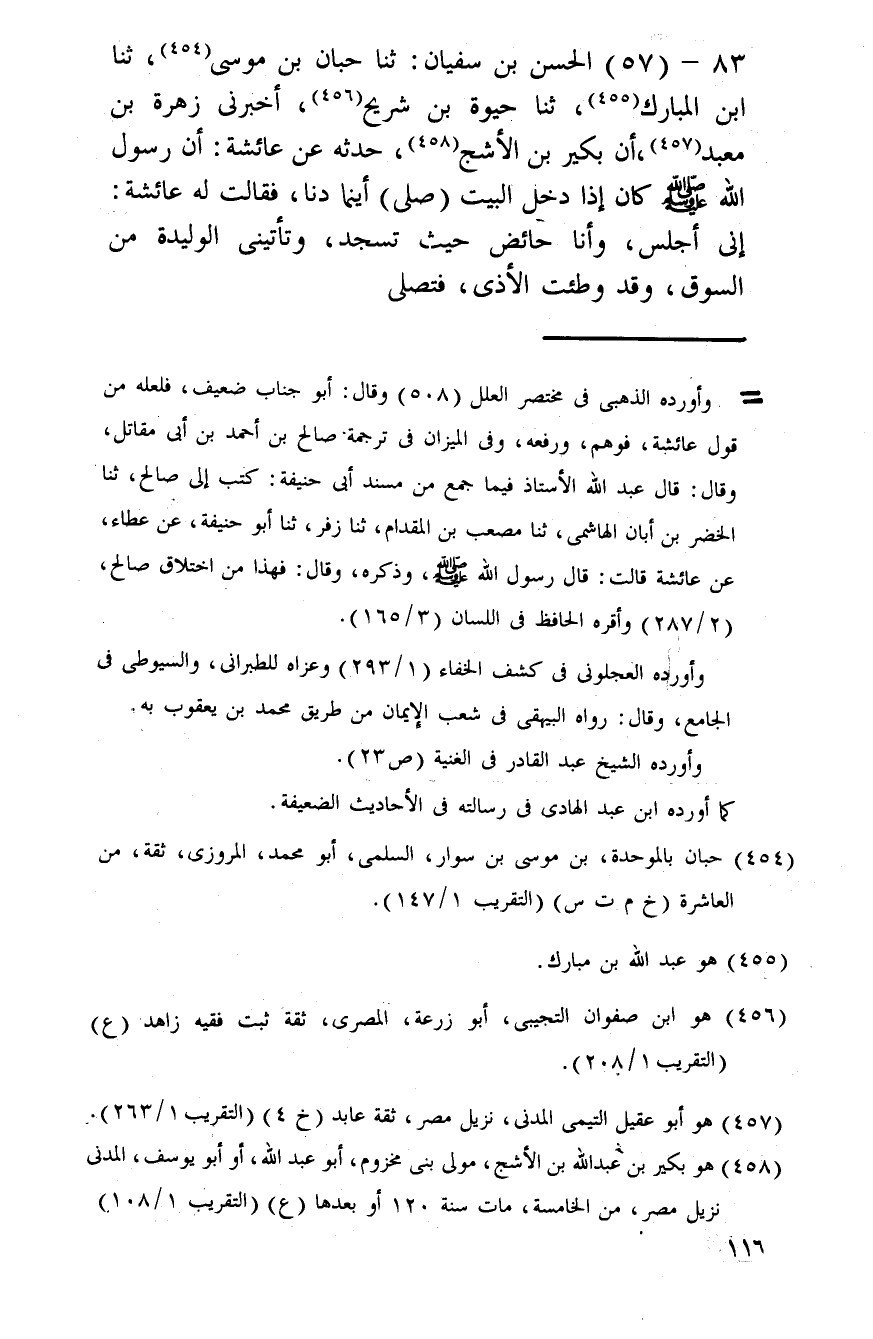 ٨٣ – (٥٧) الحسن بن سفيان: ثنا حبان بن موسى(٤٥٤)، ثنا
ابن المبارك(٤٥٥)، ثنا حيوة بن شريح(٤٥٦)، أخبرنى زهرة بن
معبد(٤٥٧)،أن بكير بن الأشج(٤٥٨)، حدثه عن عائشة: أن رسول
الله ﷺ كان إذا دخل البيت (صلى) أينما دنا، فقالت له عائشة:
إنى أجلس، وأنا حائض حيث تسجد، وتأتينى الوليدة من
السوق، وقد وطئت الأذى، فتصلى
= وأورده الذهبى فى مختصر العلل (٥٠٨) وقال: أبو جناب ضعيف، فلعله من
قول عائشة، فوهم، ورفعه، وفى الميزان فى ترجمة صالح بن أحمد بن أبى مقاتل،
وقال: قال عبد الله الأستاذ فيما جمع من مسند أبى حنيفة: كتب إلى صالح، ثنا
الخضر بن أبان الهاشمى، ثنا مصعب بن المقدام، ثنا زفر، ثنا أبو حنيفة، عن عطاء،
عن عائشة قالت: قال رسول الله ﷺ، وذكره، وقال: فهذا من اختلاق صالح،
(٢٨٧/٢) وأقره الحافظ فى اللسان (١٦٥/٣).
وأورده العجلونى فى كشف الخفاء (٢٩٣/١) وعزاه للطبرانى، والسيوطى فى
الجامع، وقال: رواه البيهقى فى شعب الإيمان من طريق محمد بن يعقوب به.
وأورده الشيخ عبد القادر فى الغنية (ص٢٣).
كما أورده ابن عبد الهادى فى رسالته فى الأحاديث الضعيفة.
(٤٥٤) حبان بالموحدة، بن موسى بن سوار، السلمى، أبو محمد، المروزى، ثقة، من
العاشرة (خ م ت س) (التقريب ١٤٧/١).
(٤٥٥) هو عبد الله بن مبارك.
(٤٥٦) هو ابن صفوان التجيبى، أبو زرعة، المصرى، ثقة ثبت فقيه زاهد (ع)
(التقريب ٢٠٨/١).
(٤٥٧) هو أبو عقيل التيمى المدنى، نزيل مصر، ثقة عابد (خ ٤) (التقريب ٢٦٣/١).
(٤٥٨) هو بكير بن عبدالله بن الأشج، مولى بنى مخزوم، أبو عبد الله، أو أبو يوسف، المدنى
نزيل مصر، من الخامسة، مات سنة ١٢٠ أو بعدها (ع) (التقريب ١٠٨/١)
١١٦